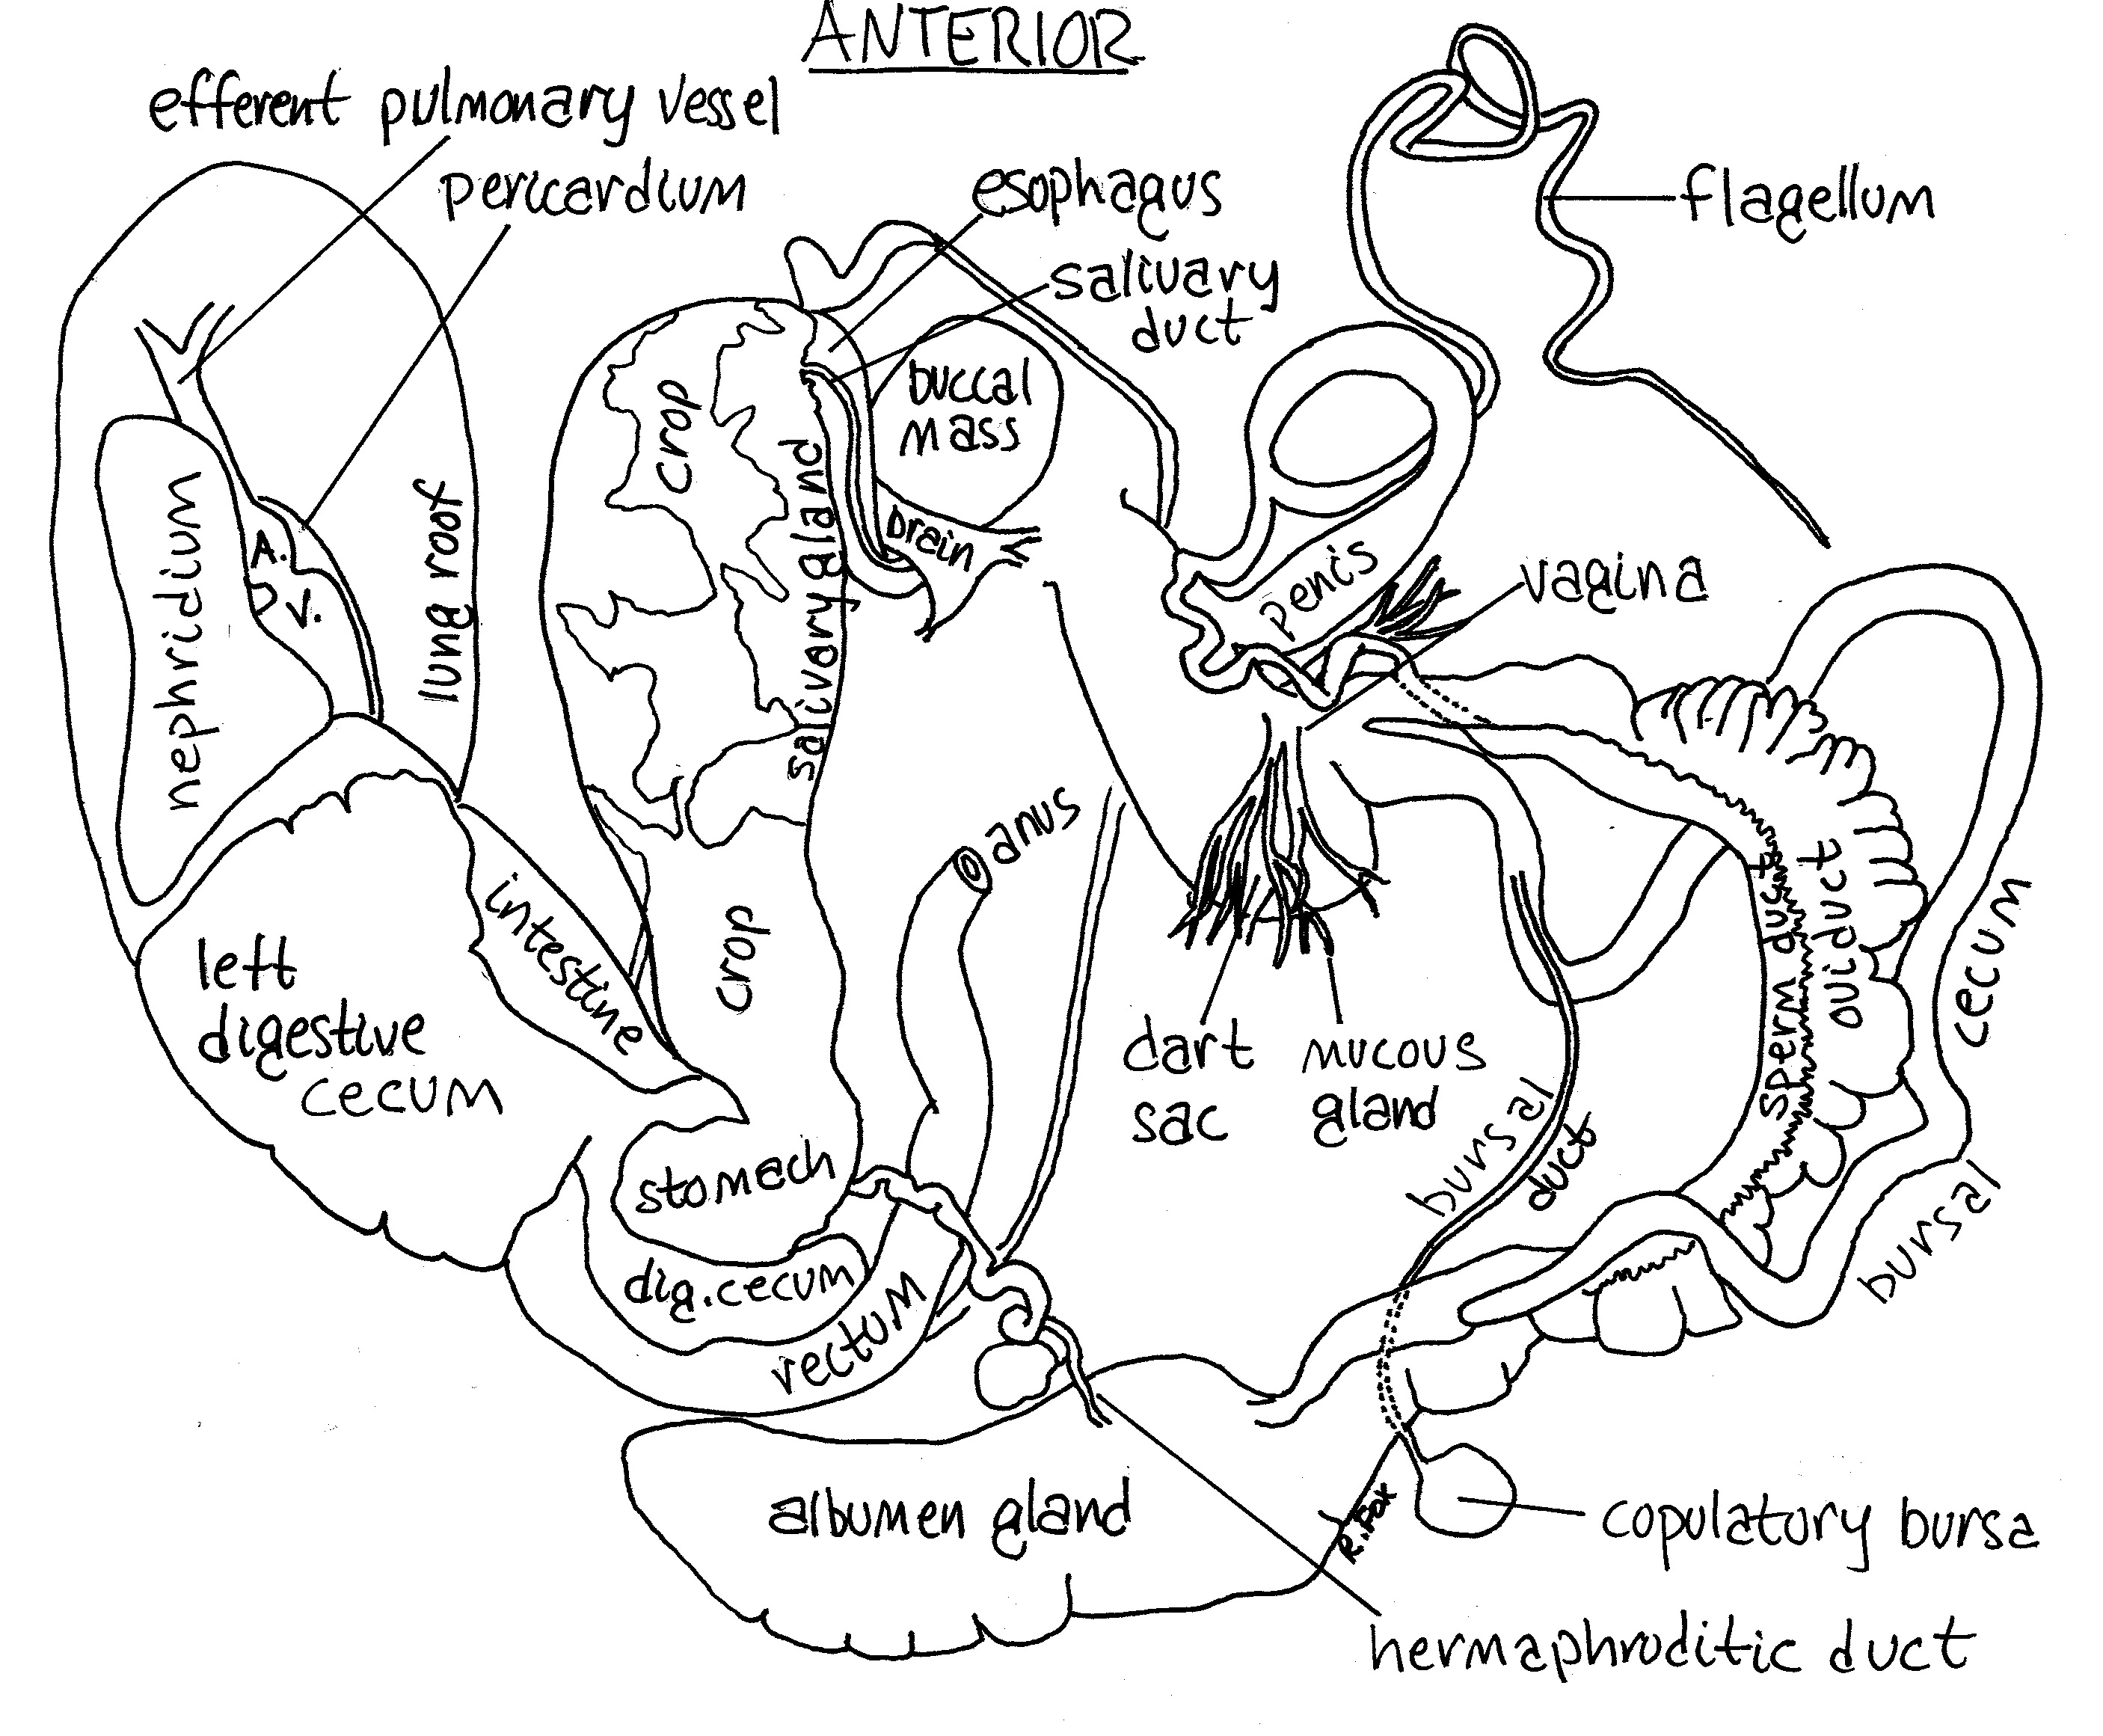 ANTERIOR
efferent pulmonary vessel
pericardium
esophagus
salivary
duct
flagellum
buccal
mass
crop
salivary gland
brain
nephridium
A.
V.
lung roof
penis
vagina
anus
intestine
left
digestive
cecum
crop
stomach
dig. cecum
rectum
dart
sac
mucous
gland
bursal
duct
sperm duct
oviduct
cecum
bursal
albumen gland
R. Fox
copulatory bursa
hermaphroditic duct